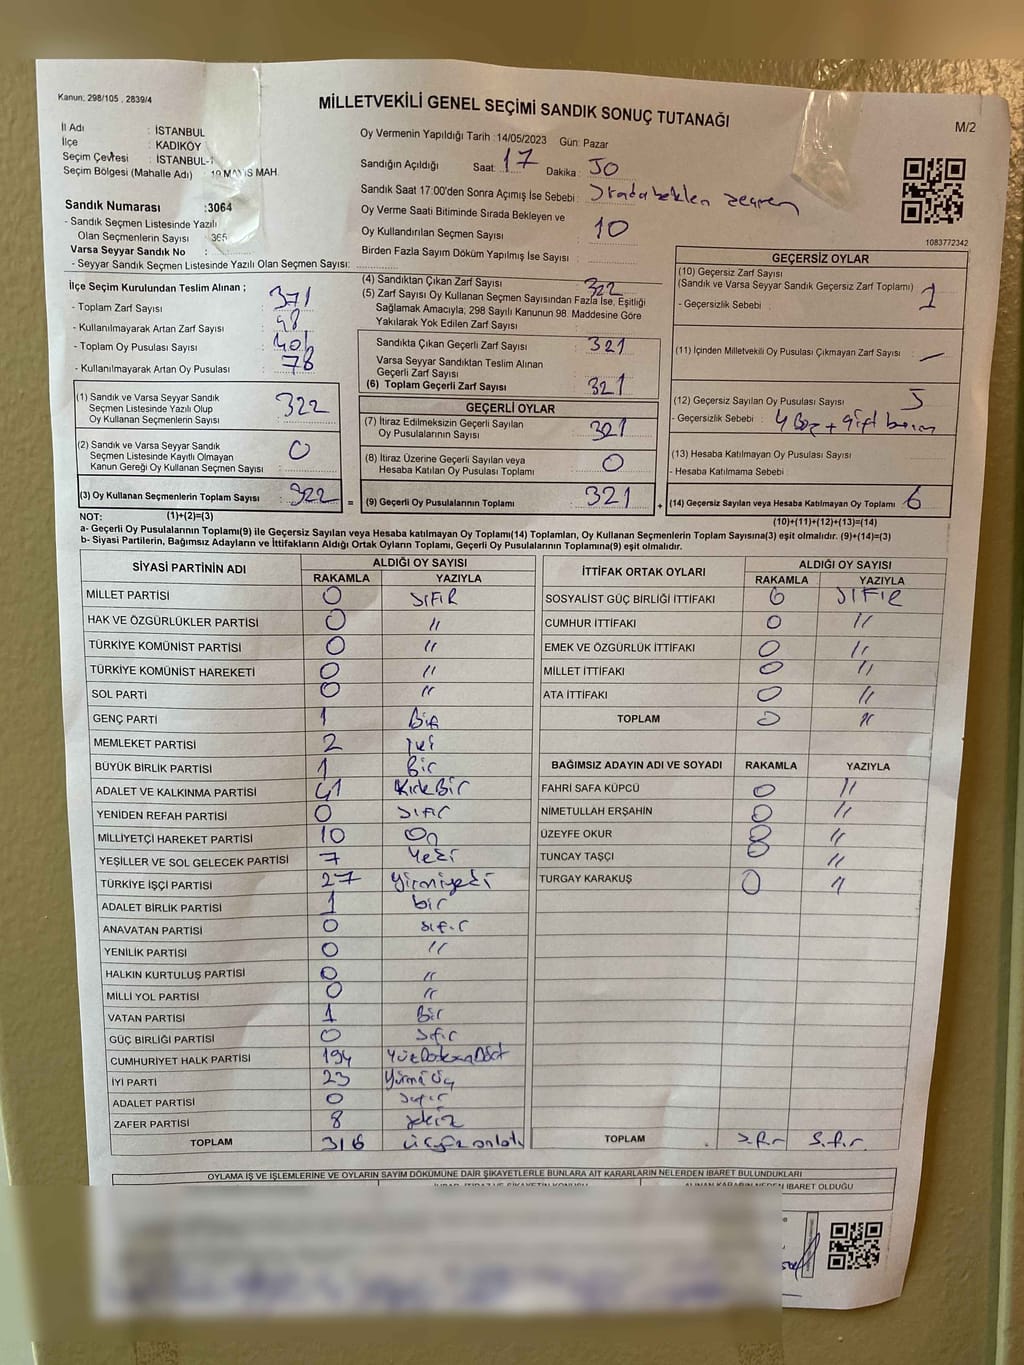 Kanun: 298/105 , 2839/4
MİLLETVEKİLİ GENEL SEÇİMİ SANDIK SONUÇ TUTANAĞI
M/2
İl Adı : İSTANBUL
İlçe : KADIKÖY
Seçim Çevresi : İSTANBUL-1
Seçim Bölgesi (Mahalle Adı) 19 MAYIS MAH.
Sandık Numarası :3064
- Sandık Seçmen Listesinde Yazılı
Olan Seçmenlerin Sayısı : 365
Varsa Seyyar Sandık No :
- Seyyar Sandık Seçmen Listesinde Yazılı Olan Seçmen Sayısı:
Oy Vermenin Yapıldığı Tarih :14/05/2023 Gün: Pazar
Sandığın Açıldığı Saat: 17 Dakika: 50
Sandık Saat 17:00'den Sonra Açımış İse Sebebi : Sırada beklen seçmen
Oy Verme Saati Bitiminde Sırada Bekleyen ve
Oy Kullandırılan Seçmen Sayısı : 10
Birden Fazla Sayım Döküm Yapılmış İse Sayısı :
1083772342
İlçe Seçim Kurulundan Teslim Alınan ;
- Toplam Zarf Sayısı : 371
- Kullanılmayarak Artan Zarf Sayısı : 48
- Toplam Oy Pusulası Sayısı : 406
- Kullanılmayarak Artan Oy Pusulası : 78
(1) Sandık ve Varsa Seyyar Sandık
Seçmen Listesinde Yazılı Olup
Oy Kullanan Seçmenlerin Sayısı : 322
(2) Sandık ve Varsa Seyyar Sandık
Seçmen Listesinde Kayıtlı Olmayan
Kanun Gereği Oy Kullanan Seçmen Sayısı : 0
(3) Oy Kullanan Seçmenlerin Toplam Sayısı : 322 =
(1)+(2)=(3)
(4) Sandıktan Çıkan Zarf Sayısı : 322
(5) Zarf Sayısı Oy Kullanan Seçmen Sayısından Fazla İse, Eşitliği
Sağlamak Amacıyla; 298 Sayılı Kanunun 98. Maddesine Göre
Yakılarak Yok Edilen Zarf Sayısı :
Sandıkta Çıkan Geçerli Zarf Sayısı : 321
Varsa Seyyar Sandıktan Teslim Alınan
Geçerli Zarf Sayısı :
(6) Toplam Geçerli Zarf Sayısı : 321
GEÇERLİ OYLAR
(7) İtiraz Edilmeksizin Geçerli Sayılan
Oy Pusulalarının Sayısı : 321
(8) İtiraz Üzerine Geçerli Sayılan veya
Hesaba Katılan Oy Pusulası Toplamı : 0
(9) Geçerli Oy Pusulalarının Toplamı : 321 +
GEÇERSİZ OYLAR
(10) Geçersiz Zarf Sayısı :
(Sandık ve Varsa Seyyar Sandık Geçersiz Zarf Toplamı) 1
- Geçersizlik Sebebi :
(11) İçinden Milletvekili Oy Pusulası Çıkmayan Zarf Sayısı : —
(12) Geçersiz Sayılan Oy Pusulası Sayısı : 5
- Geçersizlik Sebebi : 4 Boş + çift basım
(13) Hesaba Katılmayan Oy Pusulası Sayısı :
- Hesaba Katılmama Sebebi :
(14) Geçersiz Sayılan veya Hesaba Katılmayan Oy Toplamı : 6
(10)+(11)+(12)+(13)=(14)
NOT:
a- Geçerli Oy Pusulalarının Toplamı(9) ile Geçersiz Sayılan veya Hesaba katılmayan Oy Toplamı(14) Toplamları, Oy Kullanan Seçmenlerin Toplam Sayısına(3) eşit olmalıdır. (9)+(14)=(3)
b- Siyasi Partilerin, Bağımsız Adayların ve İttifakların Aldığı Ortak Oyların Toplamı, Geçerli Oy Pusulalarının Toplamına(9) eşit olmalıdır.
SİYASİ PARTİNİN ADI ALDIĞI OY SAYISI
RAKAMLA YAZIYLA
MİLLET PARTİSİ 0 SIFIR
HAK VE ÖZGÜRLÜKLER PARTİSİ 0 "
TÜRKİYE KOMÜNİST PARTİSİ 0 "
TÜRKİYE KOMÜNİST HAREKETİ 0 "
SOL PARTİ 0 "
GENÇ PARTİ 1 Bir
MEMLEKET PARTİSİ 2 iki
BÜYÜK BİRLİK PARTİSİ 1 Bir
ADALET VE KALKINMA PARTİSİ 41 Kırk Bir
YENİDEN REFAH PARTİSİ 0 SIFIR
MİLLİYETÇİ HAREKET PARTİSİ 10 On
YEŞİLLER VE SOL GELECEK PARTİSİ 7 Yedi
TÜRKİYE İŞÇİ PARTİSİ 27 Yirmiyedi
ADALET BİRLİK PARTİSİ 1 bir
ANAVATAN PARTİSİ 0 sıfır
YENİLİK PARTİSİ 0 "
HALKIN KURTULUŞ PARTİSİ 0 "
MİLLİ YOL PARTİSİ 0 "
VATAN PARTİSİ 1 Bir
GÜÇ BİRLİĞİ PARTİSİ 0 sıfır
CUMHURİYET HALK PARTİSİ 194 YüzDoksanDört
İYİ PARTİ 23 Yirmi üç
ADALET PARTİSİ 0 sıfır
ZAFER PARTİSİ 8 sekiz
TOPLAM 316 üçyüz onaltı
İTTİFAK ORTAK OYLARI ALDIĞI OY SAYISI
RAKAMLA YAZIYLA
SOSYALİST GÜÇ BİRLİĞİ İTTİFAKI 0 SIFIR
CUMHUR İTTİFAKI 0 "
EMEK VE ÖZGÜRLÜK İTTİFAKI 0 "
MİLLET İTTİFAKI 0 "
ATA İTTİFAKI 0 "
TOPLAM 0 "
BAĞIMSIZ ADAYIN ADI VE SOYADI RAKAMLA YAZIYLA
FAHRİ SAFA KÜPCÜ 0 "
NİMETULLAH ERŞAHİN 0 "
ÜZEYFE OKUR 0 "
TUNCAY TAŞÇI 0 "
TURGAY KARAKUŞ 0 "
TOPLAM sıfır sıfır
OYLAMA İŞ VE İŞLEMLERİNE VE OYLARIN SAYIM DÖKÜMÜNE DAİR ŞİKAYETLERLE BUNLARA AİT KARARLARIN NELERDEN İBARET BULUNDUKLARI
ALINAN KARARIN NEDEN İBARET OLDUĞU